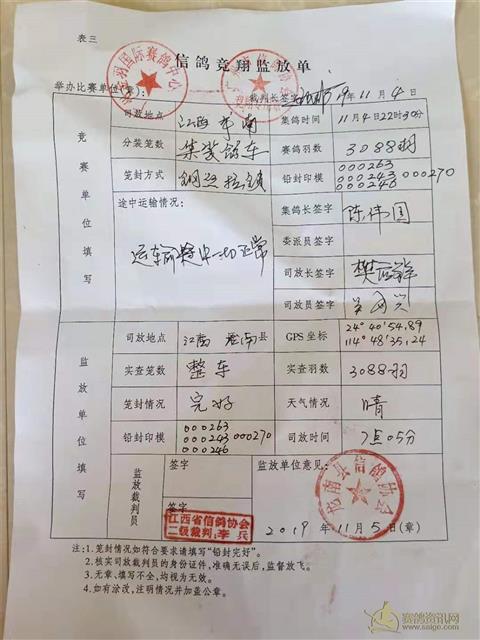 表三
信鸽竞翔监放单
举办比赛单位(章): 裁判长签字 19年11月4日
竞赛单位填写
司放地点 江西龙南 集鸽时间 11月4日22时30分
分装笼数 集装鸽车 赛鸽羽数 3088羽
笼封方式 钢丝拉锁 铅封印模 000263 000243 000270 000246
途中运输情况: 集鸽长签字 陈伟国
运车所集中一切正常 委派员签字
司放长签字
司放员签字
监放单位填写
司放地点 江西 龙南县 GPS坐标 24°40′54.89 114°48′35.24
实查笼数 整车 实查羽数 3088羽
笼封情况 完好 天气情况 晴
铅封印模 000263 000243 000270 000246 司放时间 7点05分
监放裁判员 签字 监放单位意见:
签字
江西省信鸽协会
二级裁判:李兵
龙南县信鸽协会
2019年11月5日(章)
注:1.笼封情况如符合要求请填写“铅封完好”。
2.核实司放裁判员的身份证件,准确无误后,监督放飞。
3.无章、填写不全,均视为无效。
4.如有涂改,注明情况并加盖公章。
赛鸽资讯网
www.saige.com